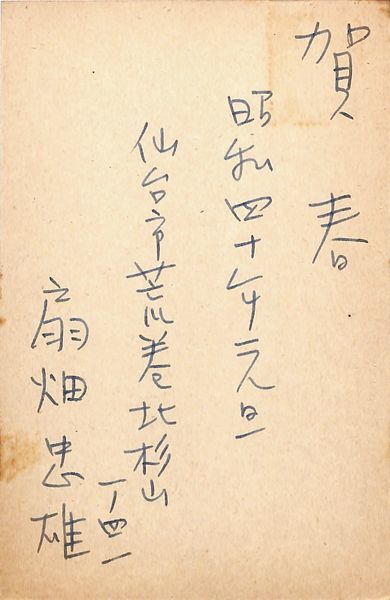 賀春
昭和四十年元旦
仙台市荒巻北杉山
一ノ四一
扇畑忠雄